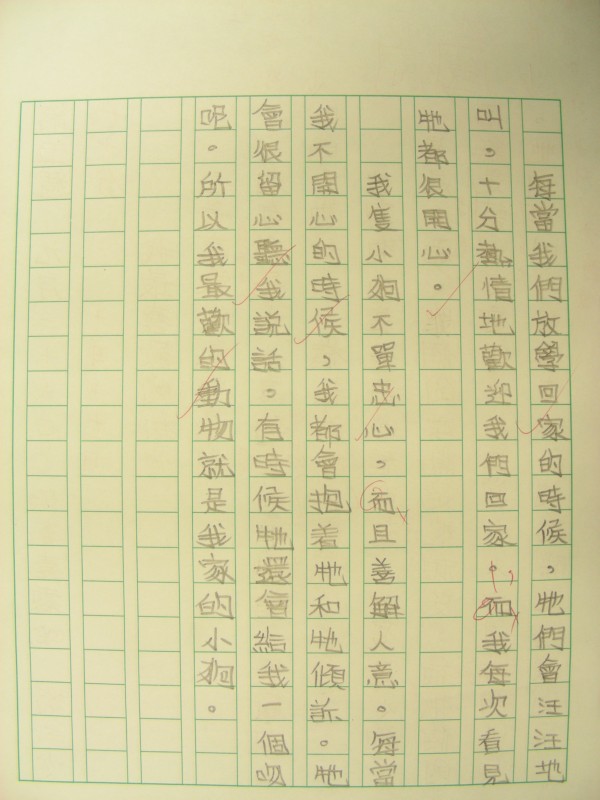 每當我們放學回家的時候，牠們會汪汪地
叫，十分熱情地歡迎我們回家，而我每次看見
牠都很開心。
我隻小狗不單忠心，而且善解人意。每當
我不開心的時候，我都會抱着牠和牠傾訴。牠
會很留心聽我說話。有時候牠還會給我一個吻
呢。所以我最歡的動物就是我家的小狗。